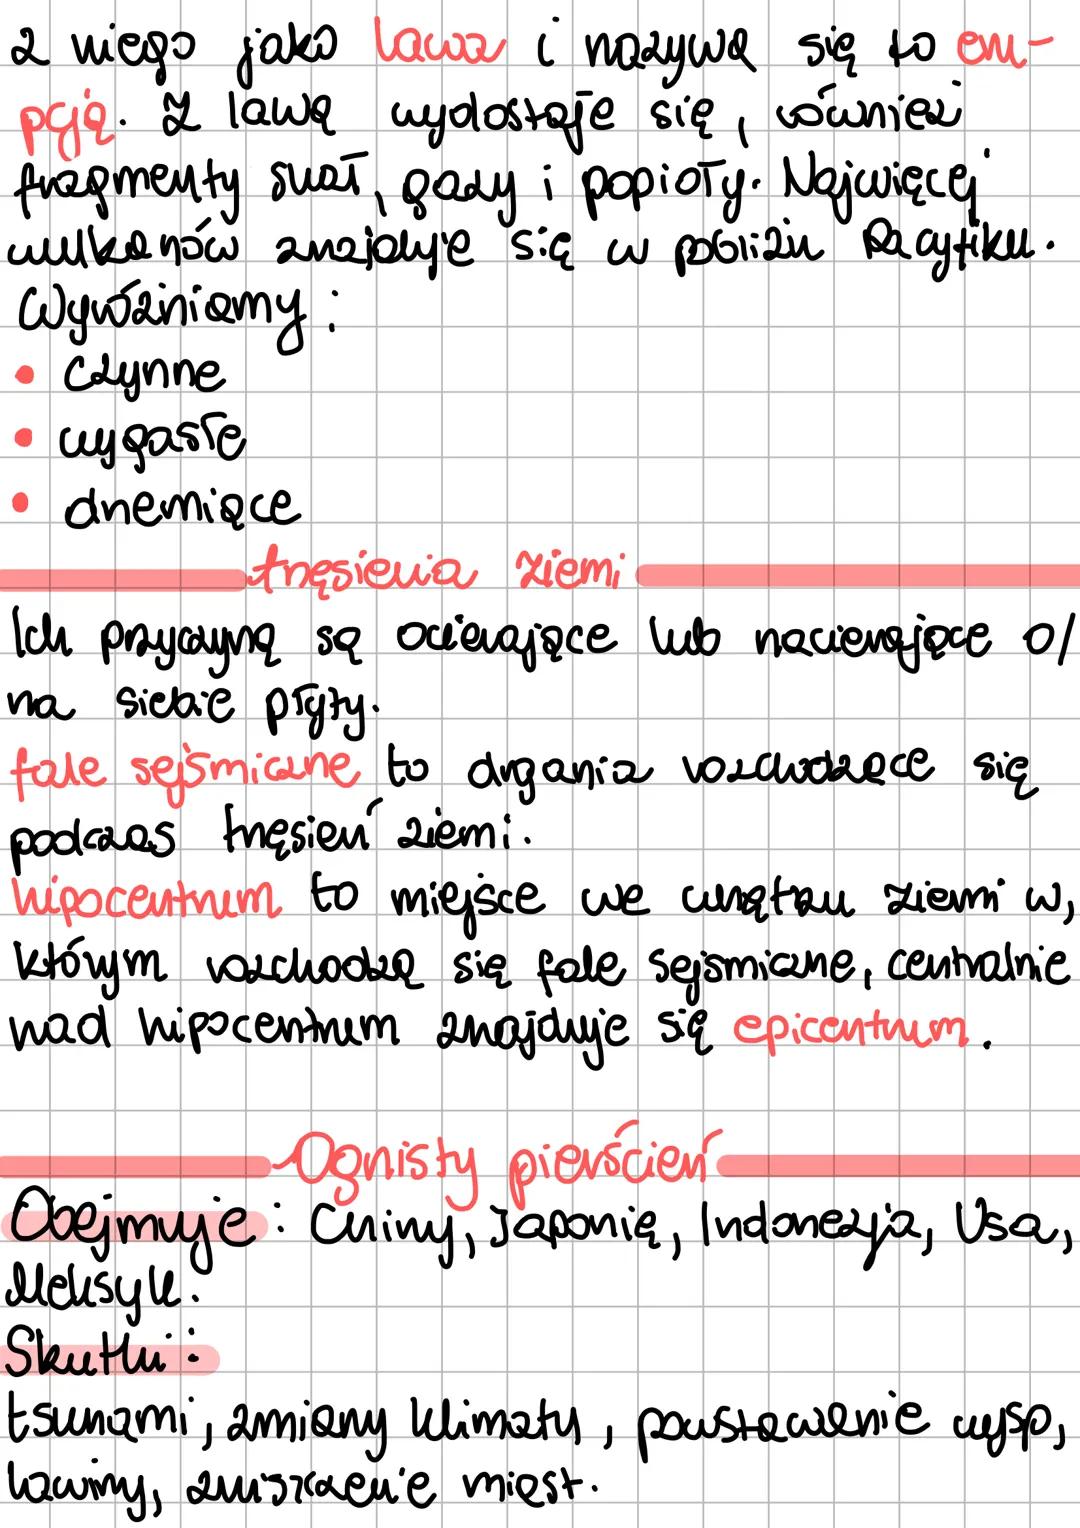 z niego jako lawa i nazywa się to eru-
pcją. Z lawą wydostaje się, również
fragmenty skał, gazy i popioły. Najwięcej
wulkanów znajduje się w pobliżu Pacyfiku.
Wyróżniamy:
• czynne
• wygasłe
• drzemiące
trzęsienia ziemi
Ich przyczyną są ocierające lub nacierające o/
na siebie płyty.
fale sejsmiczne to drgania rozchodzące się
podczas trzęsień ziemi.
hipocentrum to miejsce we wnętrzu ziemi w,
którym rozchodzą się fale sejsmiczne, centralnie
nad hipocentrum znajduje się epicentrum.
Ognisty pierścień
Obejmuje: Chiny, Japonię, Indonezja, Usa,
Meksyk.
Skutki:
tsunami, zmiany klimaty, powstawanie wysp,
lawiny, zniszczenie miast.